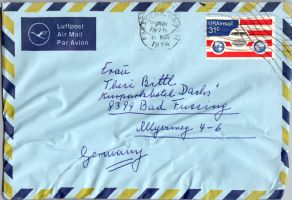 Luftpost
Air Mail
Par Avion
1976
USAirmail
31c
Frau
Theri Bittl
Kurparkhotel Dachs"
8399 Bad Füssing
Allgemeg 4-6
Germany